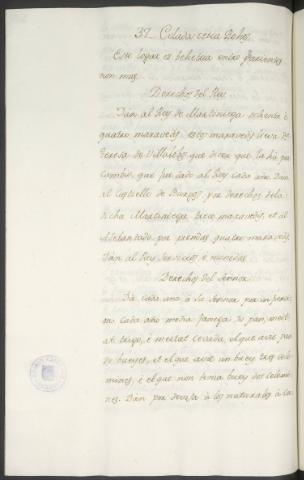 37. Celada cerca Dehes.
Este logar es behetria entre parientes
non mas.
Derechos del Rey
Dan al Rey de Martiniega ochenta é
quatro maravedis, estos maravedis lieva da
Teresa de Villalobos que dicen que la há por
cambio, que fue dado al Rey cada año. Dan
al Castiello de Burgos por derechos de la
dicha Martiniega trece maravedis, et al
Adelantado por prendas quatro maravedis.
Dan al Rey servicios, é monedas.
Derechos del Sennor
Dá cada uno á la Sennor por in
cada año media fanega de pan, meit-
at trigo, é meitat cevada, el que aver, par
de bueyes, et el que avie un buey tres cele-
mines, é el que non tenia buey dos celemi-
nes. Dan por devisa á los naturales á la